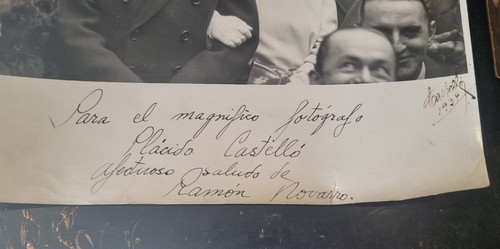 Para el magnifico fotógrafo
Plácido Castelló
afectuoso saludo de
Ramón Novarro.
1934